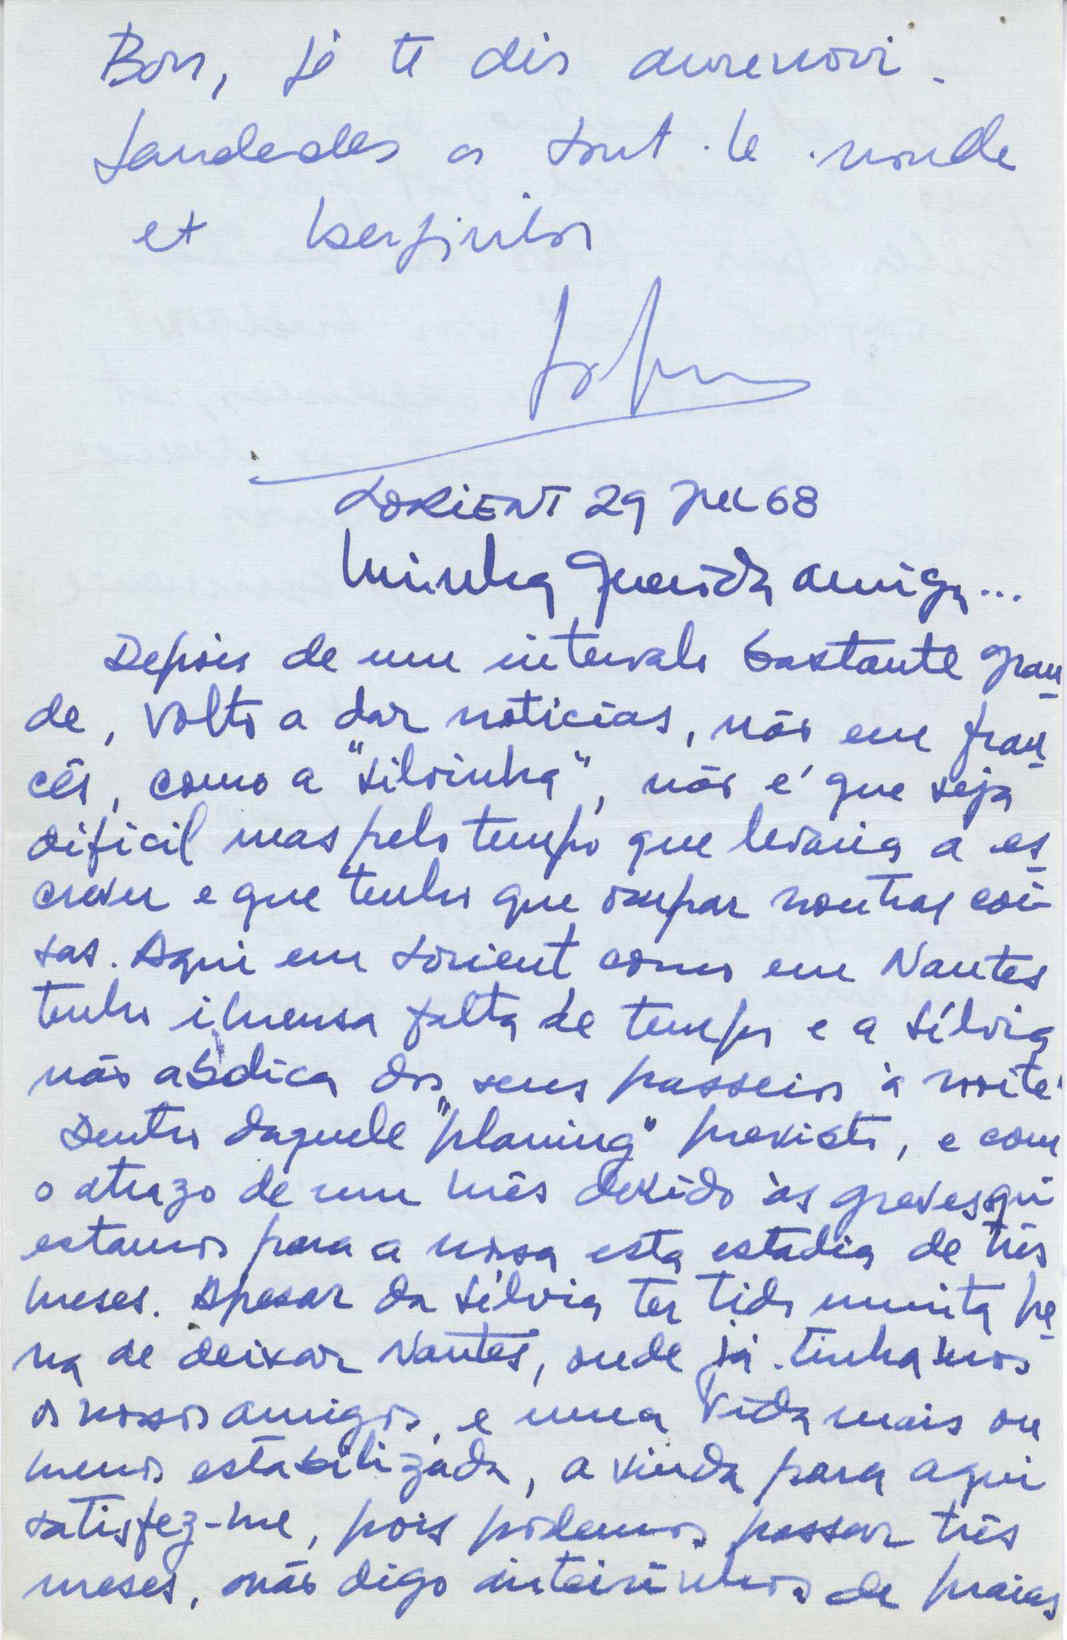 Bon, je te dis aurevoir.
Saudades a tout le monde
et beijinhos
LORIENT 29 Jul 68
Minha querida amiga...
Depois de um intervalo bastante gran-
de, volto a dar notícias, não em fran-
cês, como a "Silvinha", não é que seja
dificil mas pelo tempo que levaria a es-
crever e que tenho que ocupar noutras coi-
sas. Aqui em Lorient como em Nantes
tenho imensa falta de tempo e a Sílvia
não abdica dos seus passeios à noite.
Dentro daquele "planing" previsto, e com
o atrazo de um mês devido às greves, aqui
estamos para a nossa esta estadia de três
meses. Apesar da Sílvia ter tido muita pe-
na de deixar Nantes, onde já tinhamos
os nossos amigos, e uma vida mais ou
menos estabilizada, a vinda para aqui
satisfez-me, pois podemos passar três
meses, não digo inteirinhos de praias